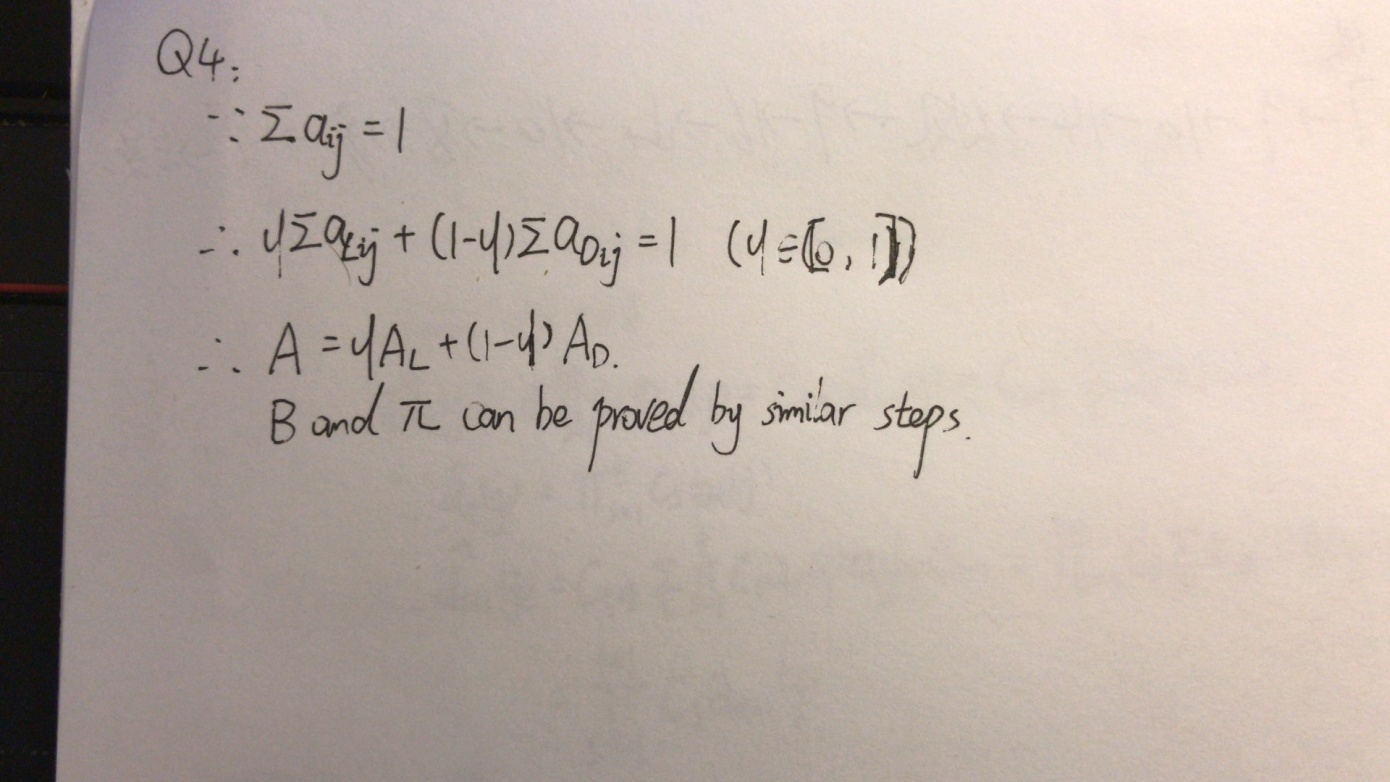 Q4:
∵ Σ aij = 1
∴ yΣaLij + (1-y)ΣaDij = 1 (y∈[0, 1])
∴ A = yAL + (1-y) AD.
B and π can be proved by similar steps.